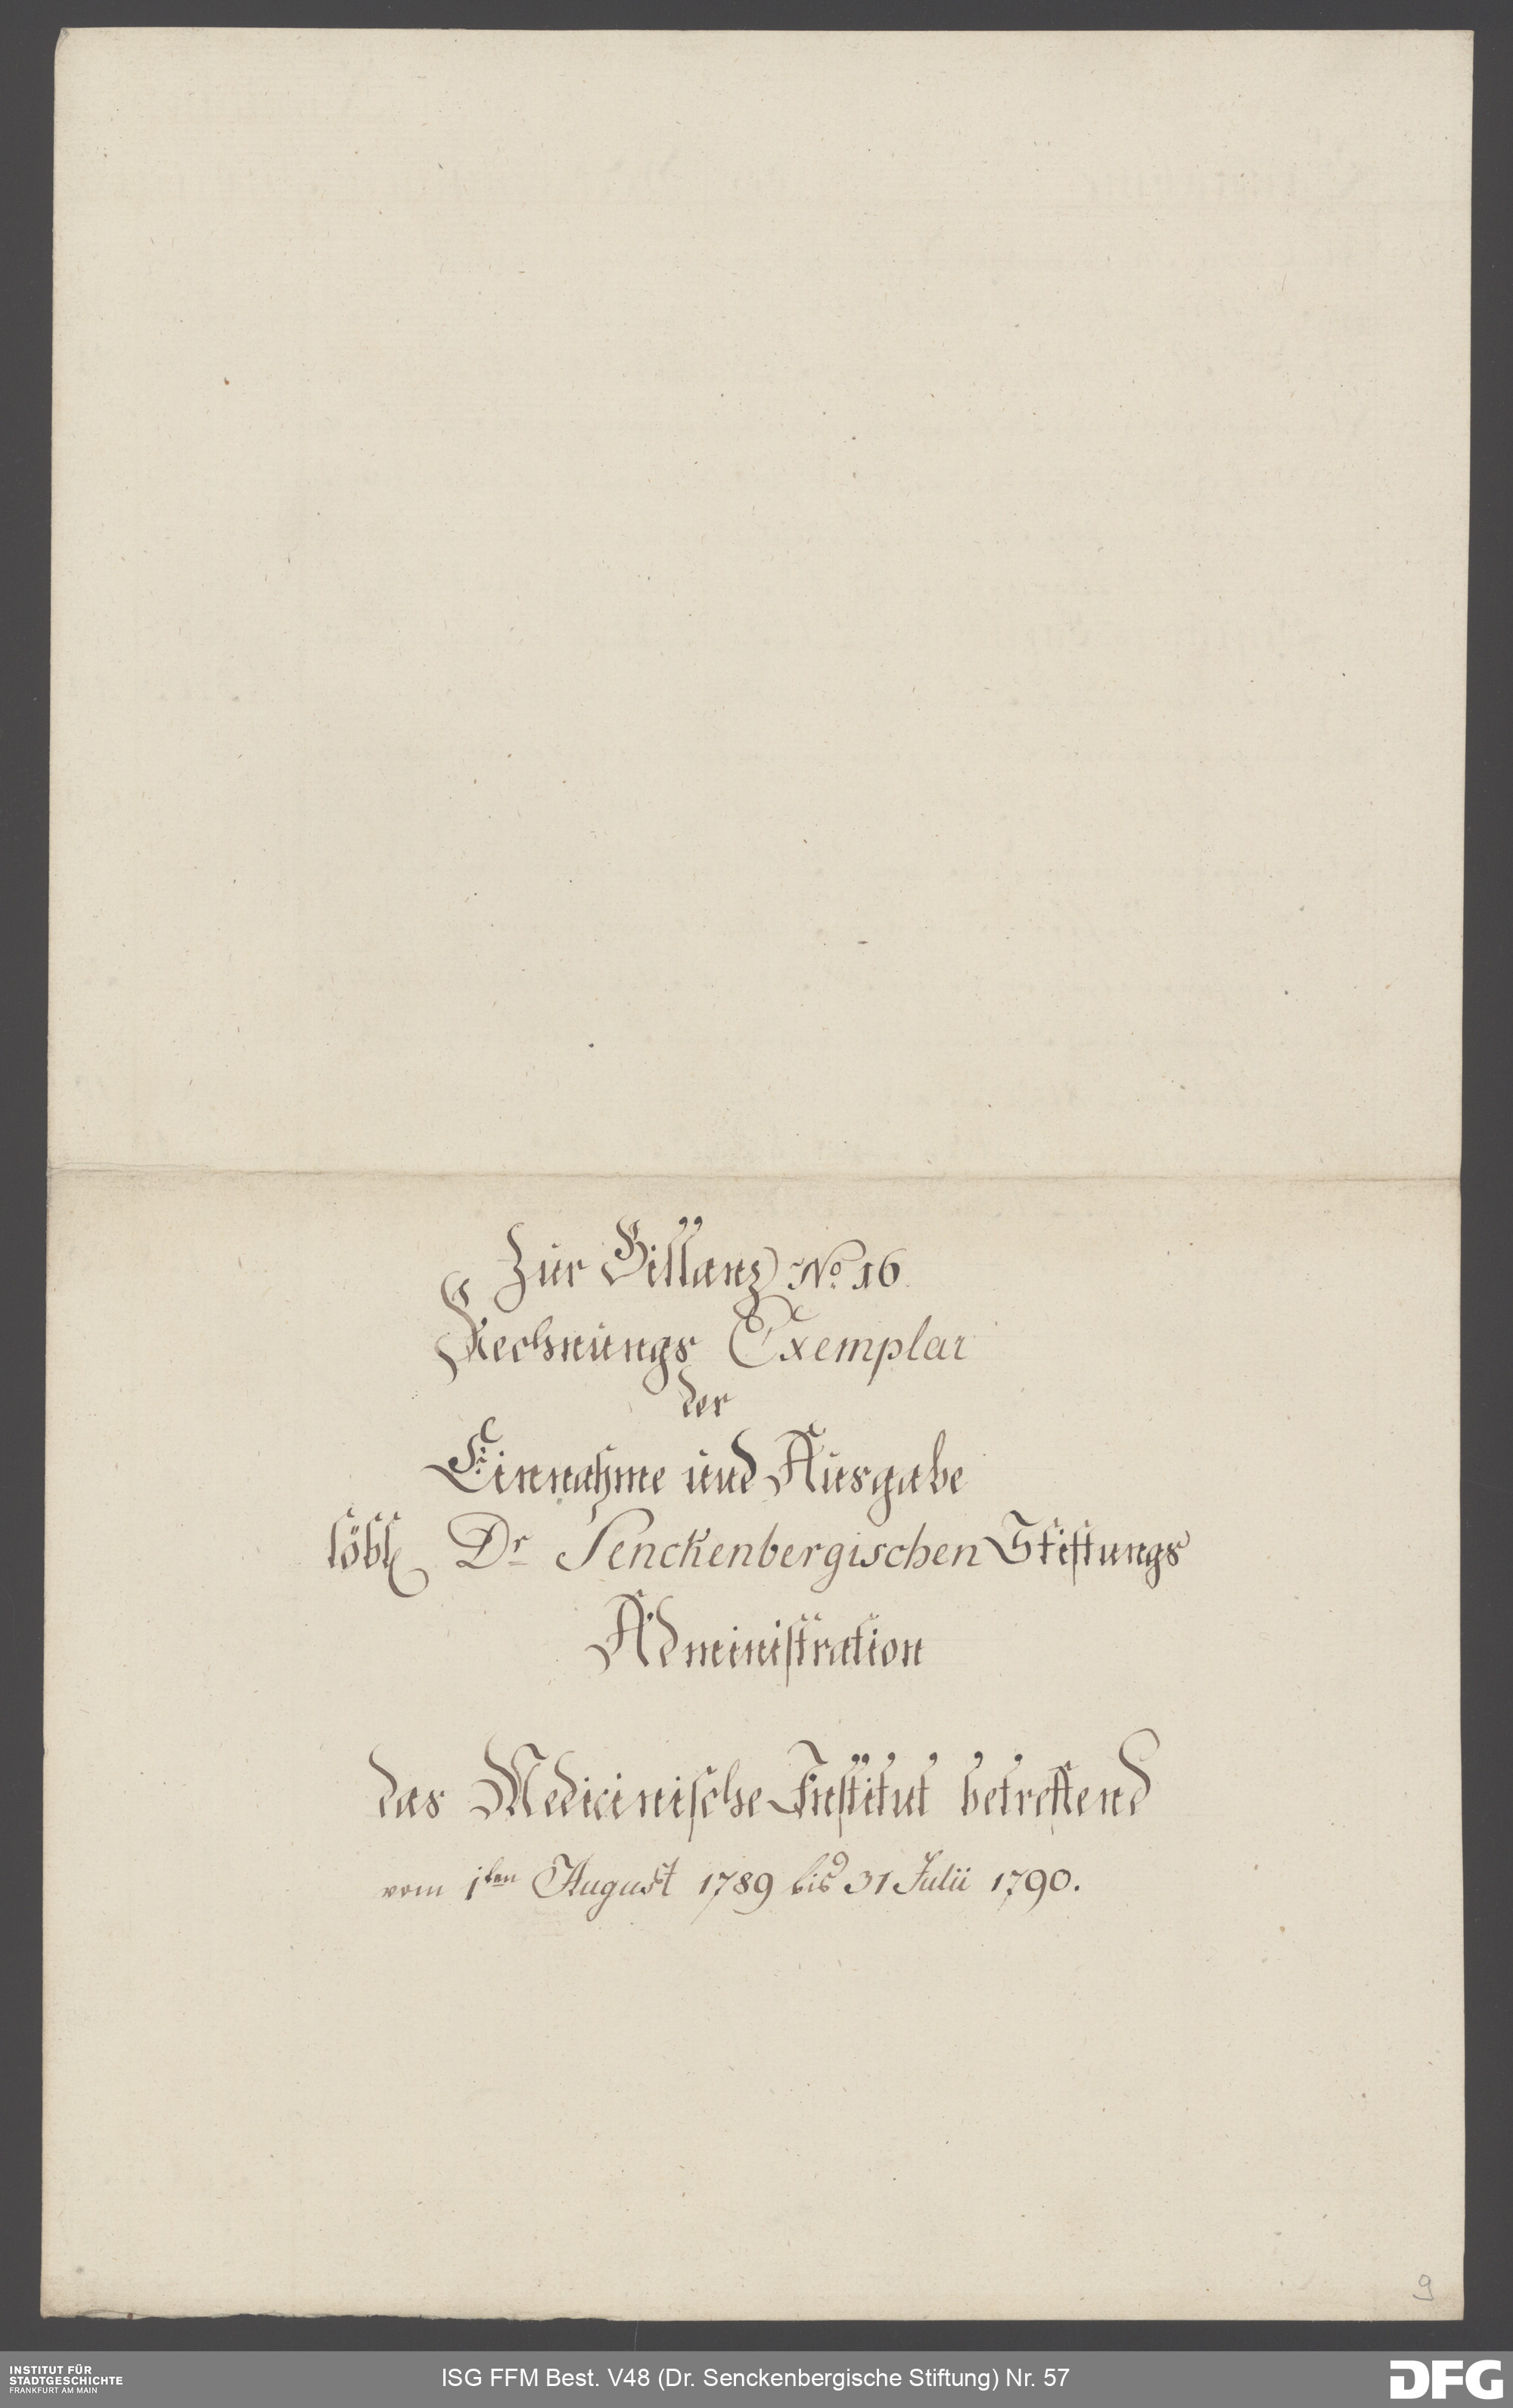 Zur Billanz No. 16
Rechnungs Exemplar
der
Einnahme und Ausgabe
löbl. Dr. Senckenbergischen Stiftungs
Administration
das Medicinische Institut betreffend
vom 1ten August 1789 bis 31 Julii 1790.
9
INSTITUT FÜR
STADTGESCHICHTE
FRANKFURT AM MAIN
ISG FFM Best. V48 (Dr. Senckenbergische Stiftung) Nr. 57
DFG